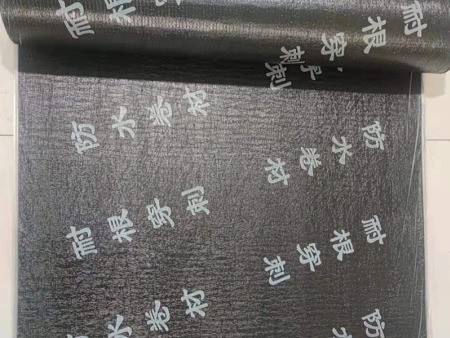 耐根穿刺
耐根穿刺
防水卷材
防水卷材
耐根穿刺
耐根穿刺
防水卷材
防水